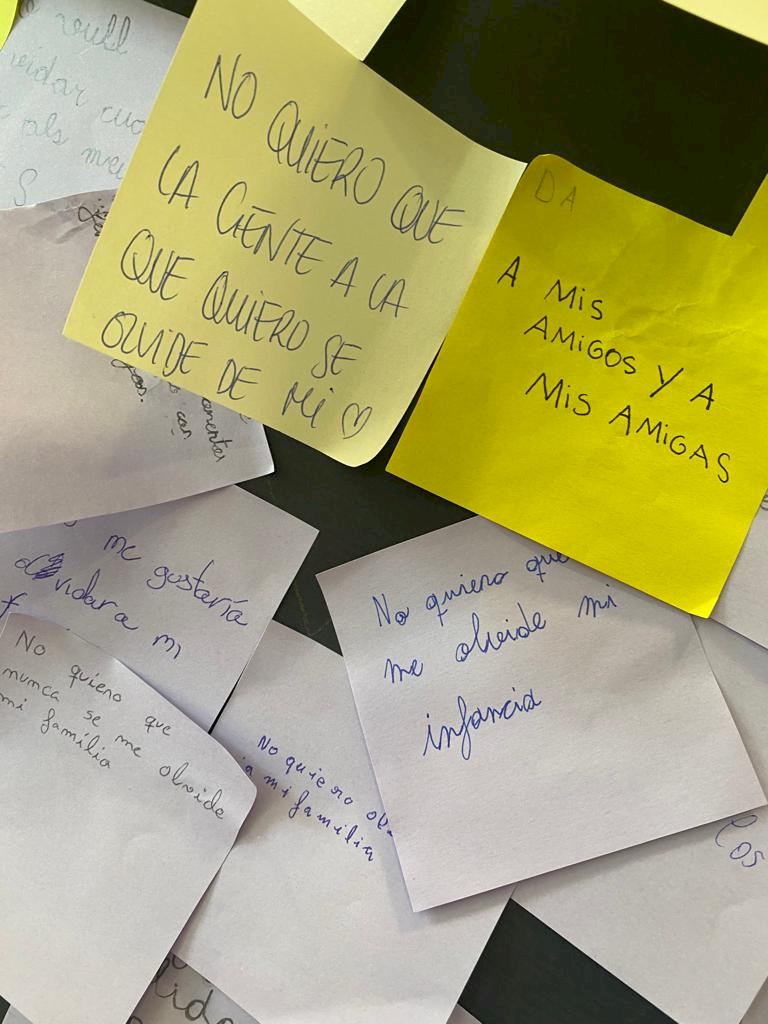 vull
vidar
als
S
NO QUIERO QUE
LA GENTE A LA
QUE QUIERO SE
OLVIDE DE Mi ♡
DA
A Mis
AMiGOS Y A
Mis AMiGAS
con
me gustaría
vidar a mi
No quiero que
me olvide mi
infancia
No quiero que
nunca se me olvide
mi família
No quiero olv
a mi familia
Los
lida